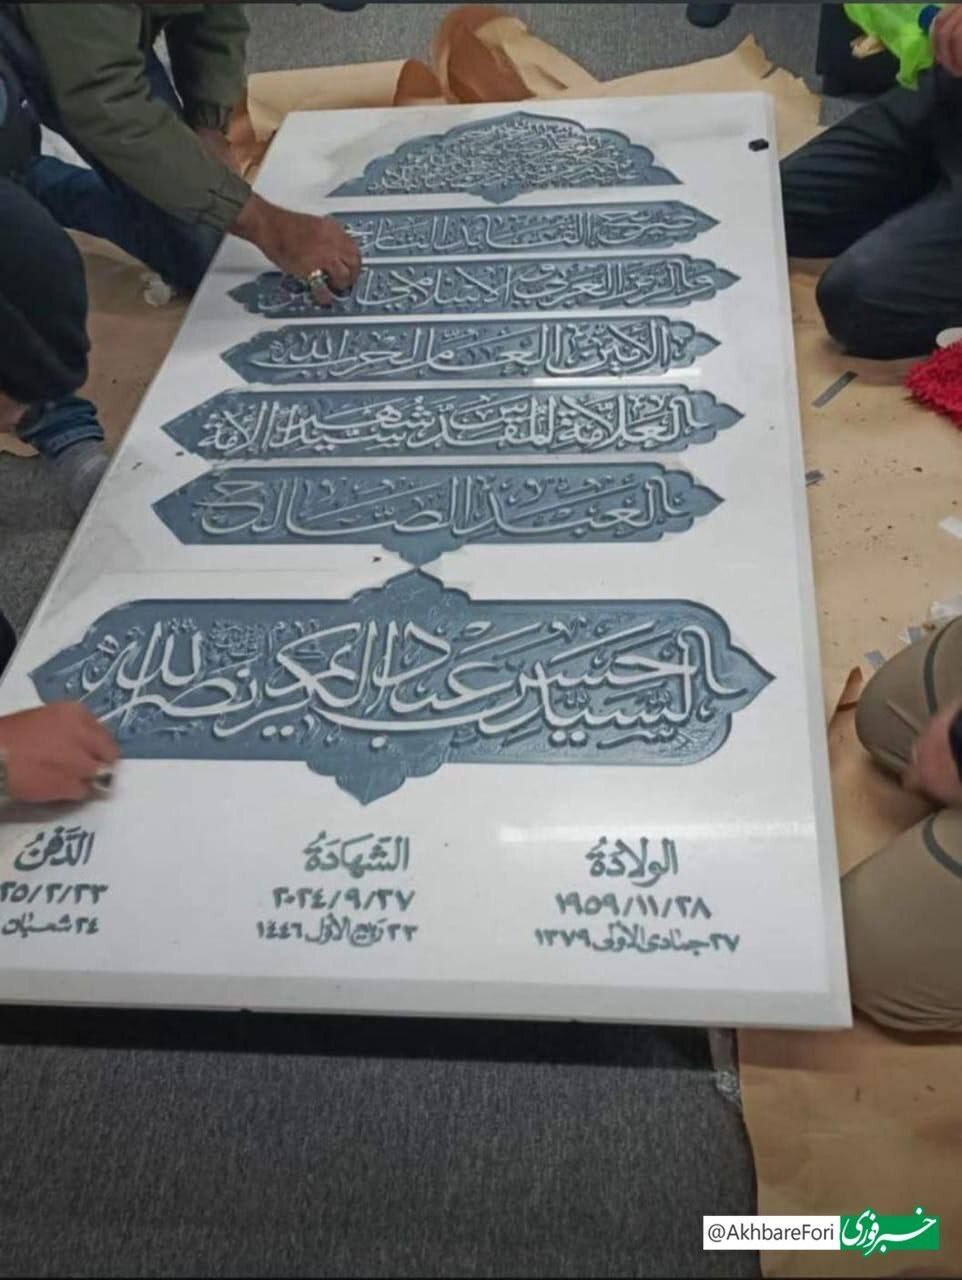 ضريح القائد
والشرق العربي والإسلامي
الأمين العام لحزب الله
العلامة المقدس شهيد الأمة
العبد الصالح
السيد حسن عبد الكريم نصر الله
الولادة
١٩٥٩/١١/٢٨
٢٧ جمادى الأولى ١٣٧٩
الشهادة
٢٠٢٤/٩/٢٧
٢٣ ربيع الأول ١٤٤٦
الدفن
٢٥/٢/٢٣
٢٤ شعبان
@AkhbareFori
خبرفوری